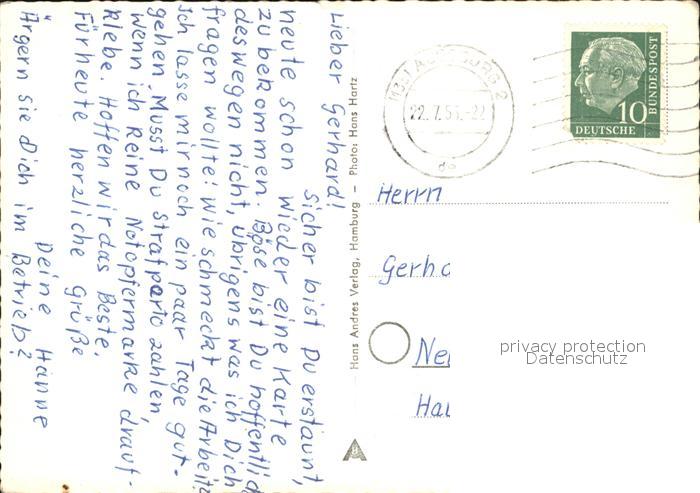 Lieber Gerhard!
Sicher bist Du erstaunt,
heute schon wieder eine Karte
zu bekommen. Böse bist Du hoffentlich
deswegen nicht, übrigens was ich Dich
fragen wollte: wie schmeckt die Arbeit?
Ich lasse mir noch ein paar Tage gut-
gehen, Musst Du Strafporto zahlen,
wenn ich keine Notopfermarke drauf-
klebe. Hoffen wir das Beste.
Für heute herzliche Grüße
Deine Hanne
Ärgern sie Dich im Betrieb?
Hans Andres Verlag, Hamburg – Photo: Hans Hartz
AUGSBURG 2
22.7.55.-22
10
DEUTSCHE
BUNDESPOST
Herrn
Gerha
Neu
Hau
privacy protection
Datenschutz